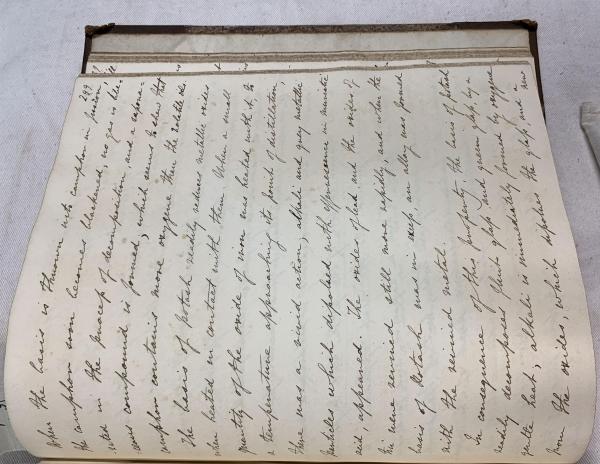 When the basis is thrown into camphor in fusion,
the camphor soon becomes blackened, no gas is libe-
rated in the process of decomposition, and a sapona-
ceous compound is formed, which seems to shew that
camphor contains more oxygene than the volatile oils.
The basis of potash readily reduces metallic oxides
when heated in contact with them. When a small
quantity of the oxide of iron was heated with it, to
a temperature approaching its point of distillation,
there was a vivid action; alkali and grey metallic
particles which dissolved with effervescence in muriatic
acid, appeared. The oxides of lead and the oxides of
tin were revived still more rapidly, and when the
basis of potash was in excess, an alloy was formed
with the revived metal.
In consequence of this property, the basis of potash
readily decomposes flint glass and green glass, by a
gentle heat; alkali is immediately formed by oxygene
from the oxides, which dissolves the glass, and a new